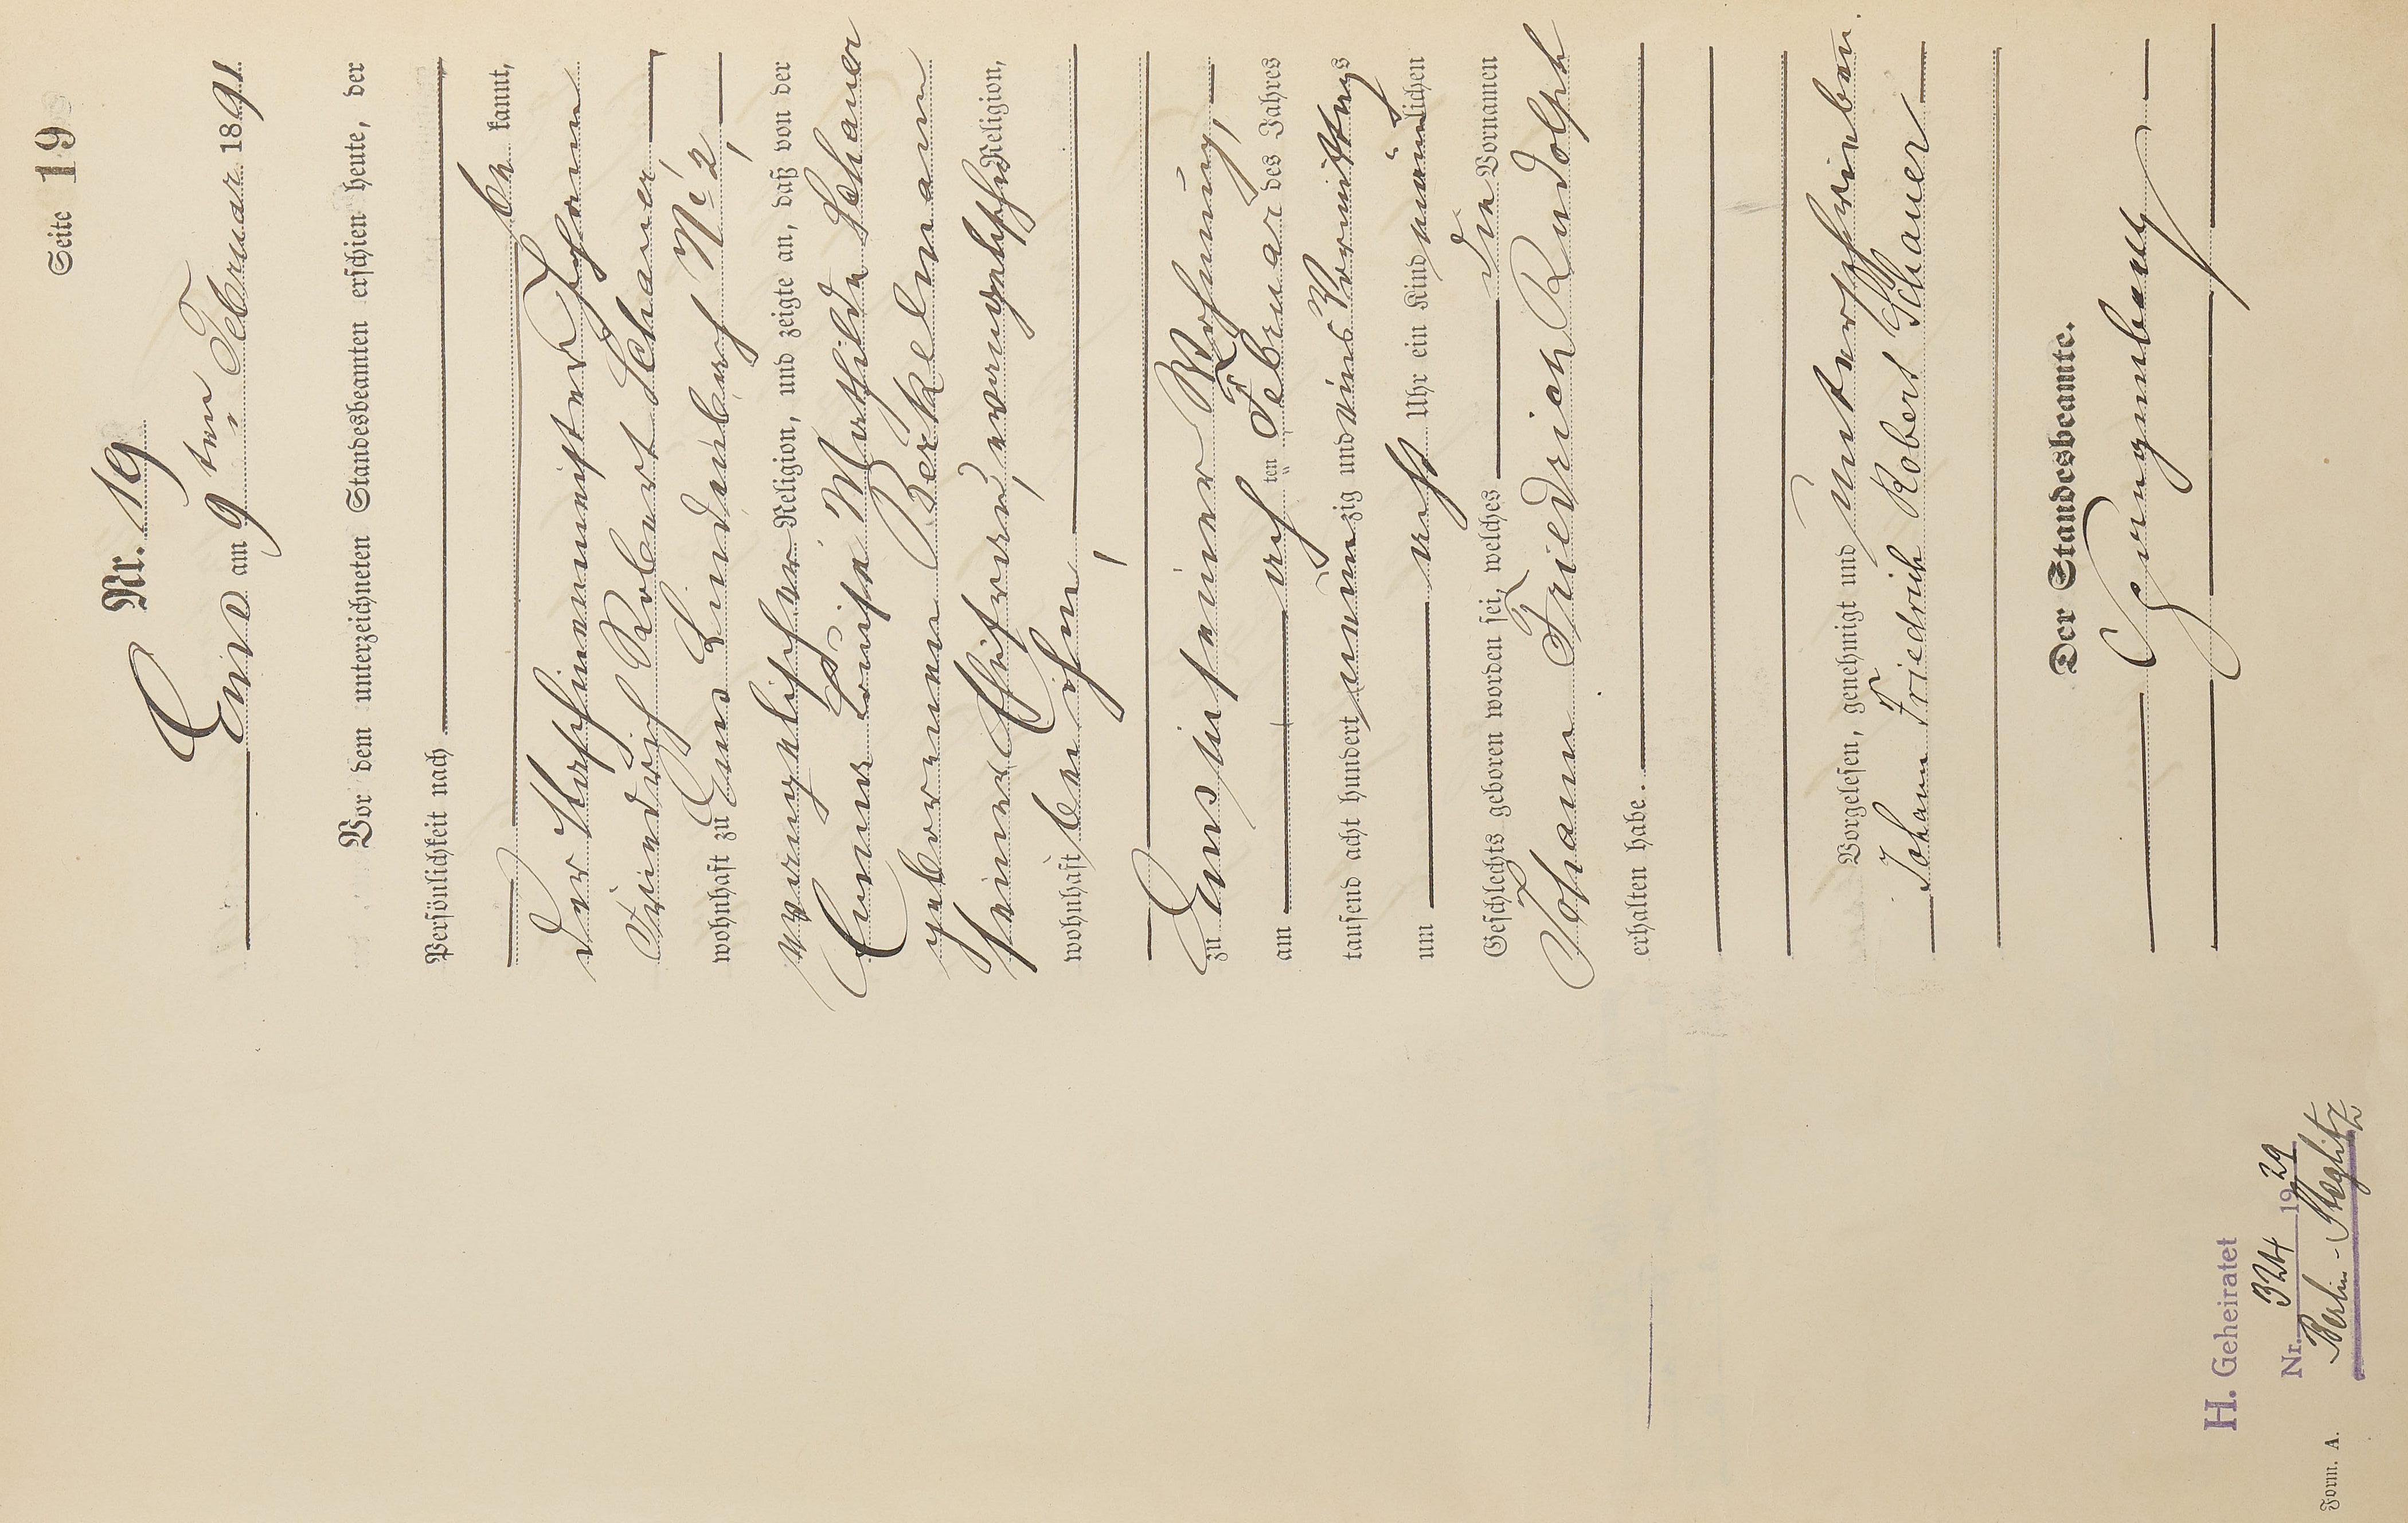 Seite 19
Nr. 19
Ems am 9ten Februar 1891
Vor dem unterzeichneten Standesbeamten erschien heute, der
Persönlichkeit nach
be kannt,
der Maschinenmeister Johann
Friedrich Robert Schauer,
wohnhaft zu Ems Lindenbach No 2,
evangelischer Religion, und zeigte an, daß von der
Emma Louise Mathilde Schauer
geborenen Berkelmann
seiner Ehefrau, evangelischer Religion,
wohnhaft bei ihm,
zu Ems in seiner Wohnung,
am acht ten Februar des Jahres
tausend acht hundert neunzig und eins Vormittags
um acht Uhr ein Kind männlichen
Geschlechts geboren worden sei, welches die Vornamen
Johann Friedrich Rudolph
erhalten habe.
Vorgelesen, genehmigt und unterschrieben.
Johann Friedrich Robert Schauer
Der Standesbeamte.
H. Geheiratet
Nr. 324 1929
Berlin-Steglitz
Form. A.